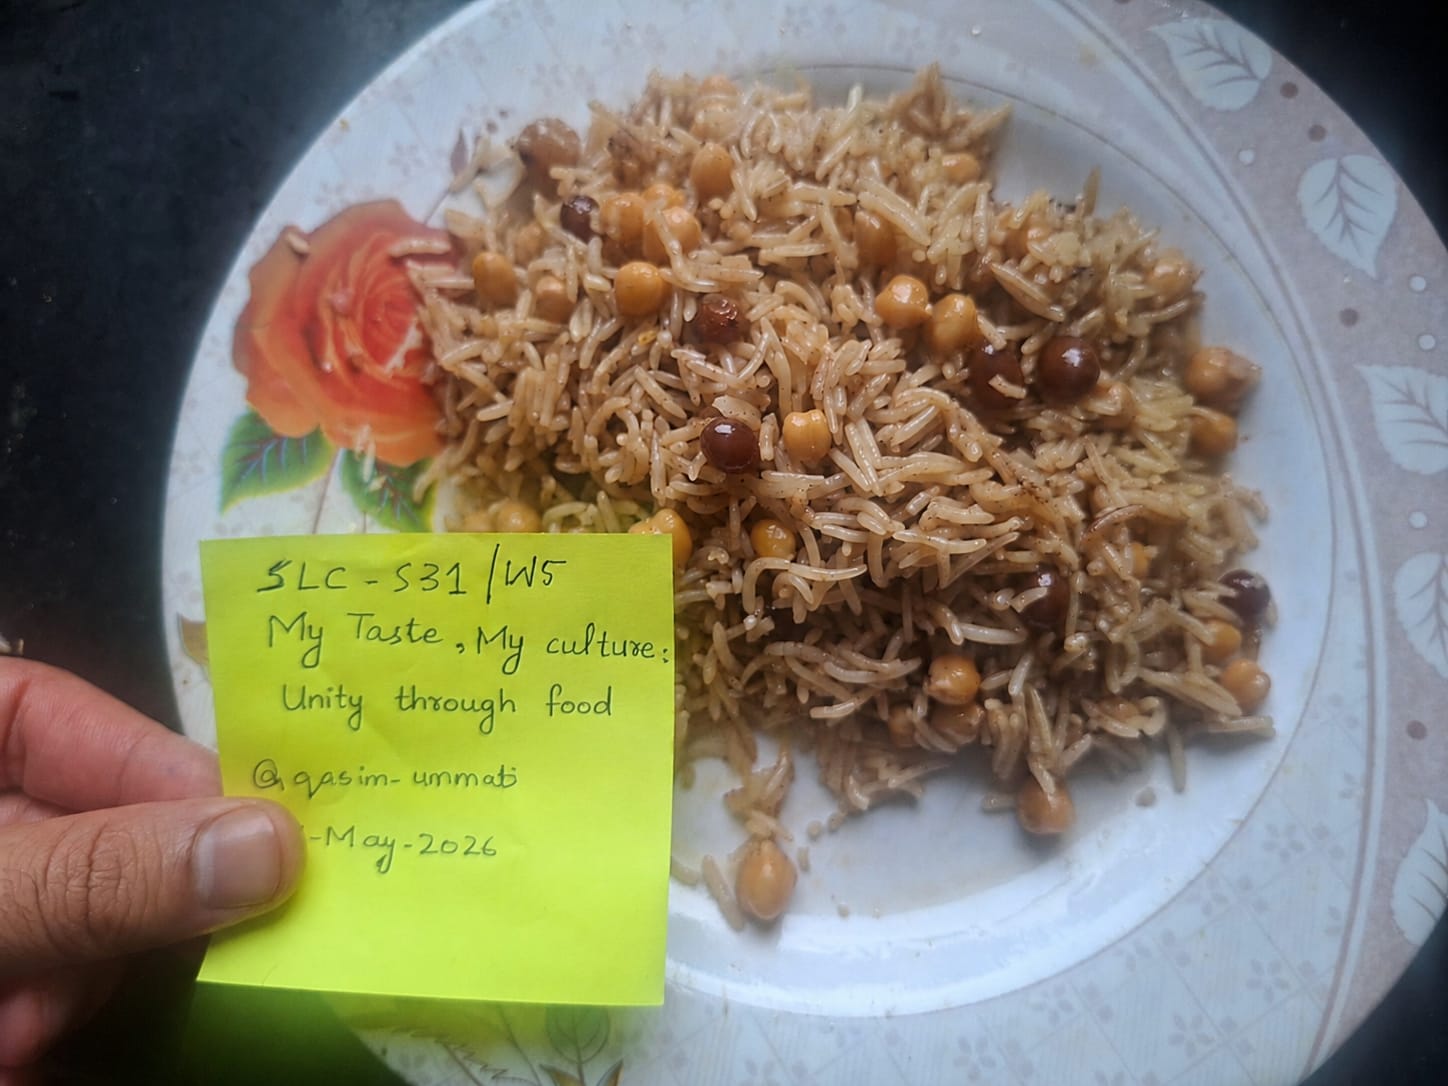 SLC - S31 / W5
My Taste, My culture:
Unity through food
@qasim-ummati
-May-2026